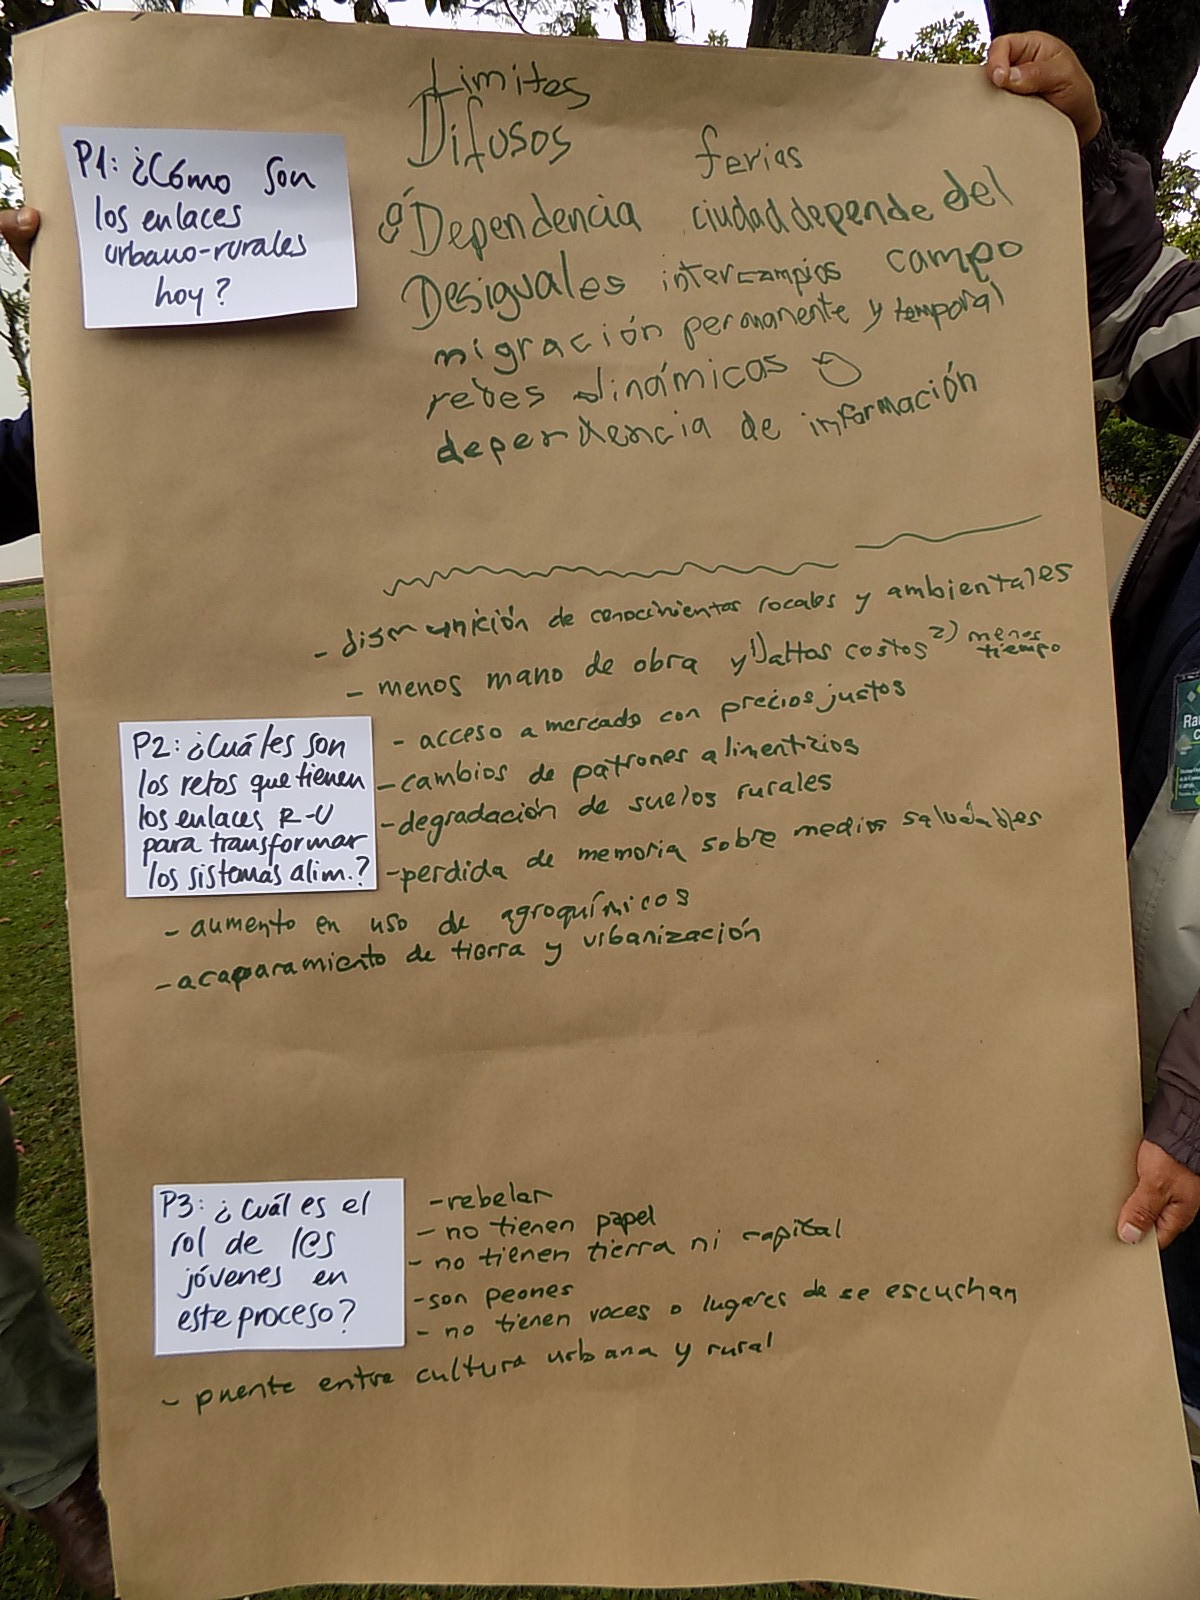 Limites
Difusos
ferias
P1: ¿Cómo son
los enlaces
urbano-rurales
hoy?
Dependencia ciudad depende del
Desiguales intercampios campo
migración permanente y temporal
redes dinámicas
dependencia de información
- dismunición de conocimientos locales y ambientales
- menos mano de obra y 1) altos costos 2) menos
tiempo
- acceso a mercado con precios justos
P2: ¿Cuáles son
los retos que tienen
los enlaces R-U
para transformar
los sistemas alim.?
- cambios de patrones alimentizios
- degradación de suelos rurales
- perdida de memoria sobre medios saludables
- aumento en uso de agroquímicos
- acaparamiento de tierra y urbanización
P3: ¿Cuál es el
rol de l@s
jóvenes en
este proceso?
- rebelar
- no tienen papel
- no tienen tierra ni capital
- son peones
- no tienen voces o lugares de se escuchan
- puente entre cultura urbana y rural